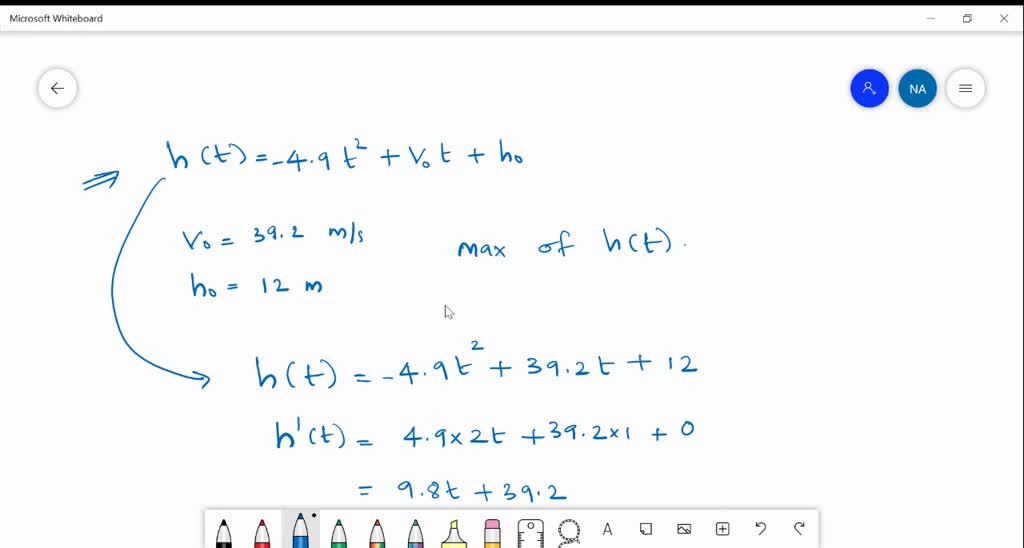 Microsoft Whiteboard
NA
h(t) = -4.9 t² + V₀ t + h₀
V₀ = 39.2 m/s
max of h(t).
h₀ = 12 m
h(t) = -4.9t² + 39.2t + 12
h'(t) = 4.9×2t + 39.2×1 + 0
= 9.8t + 39.2
A